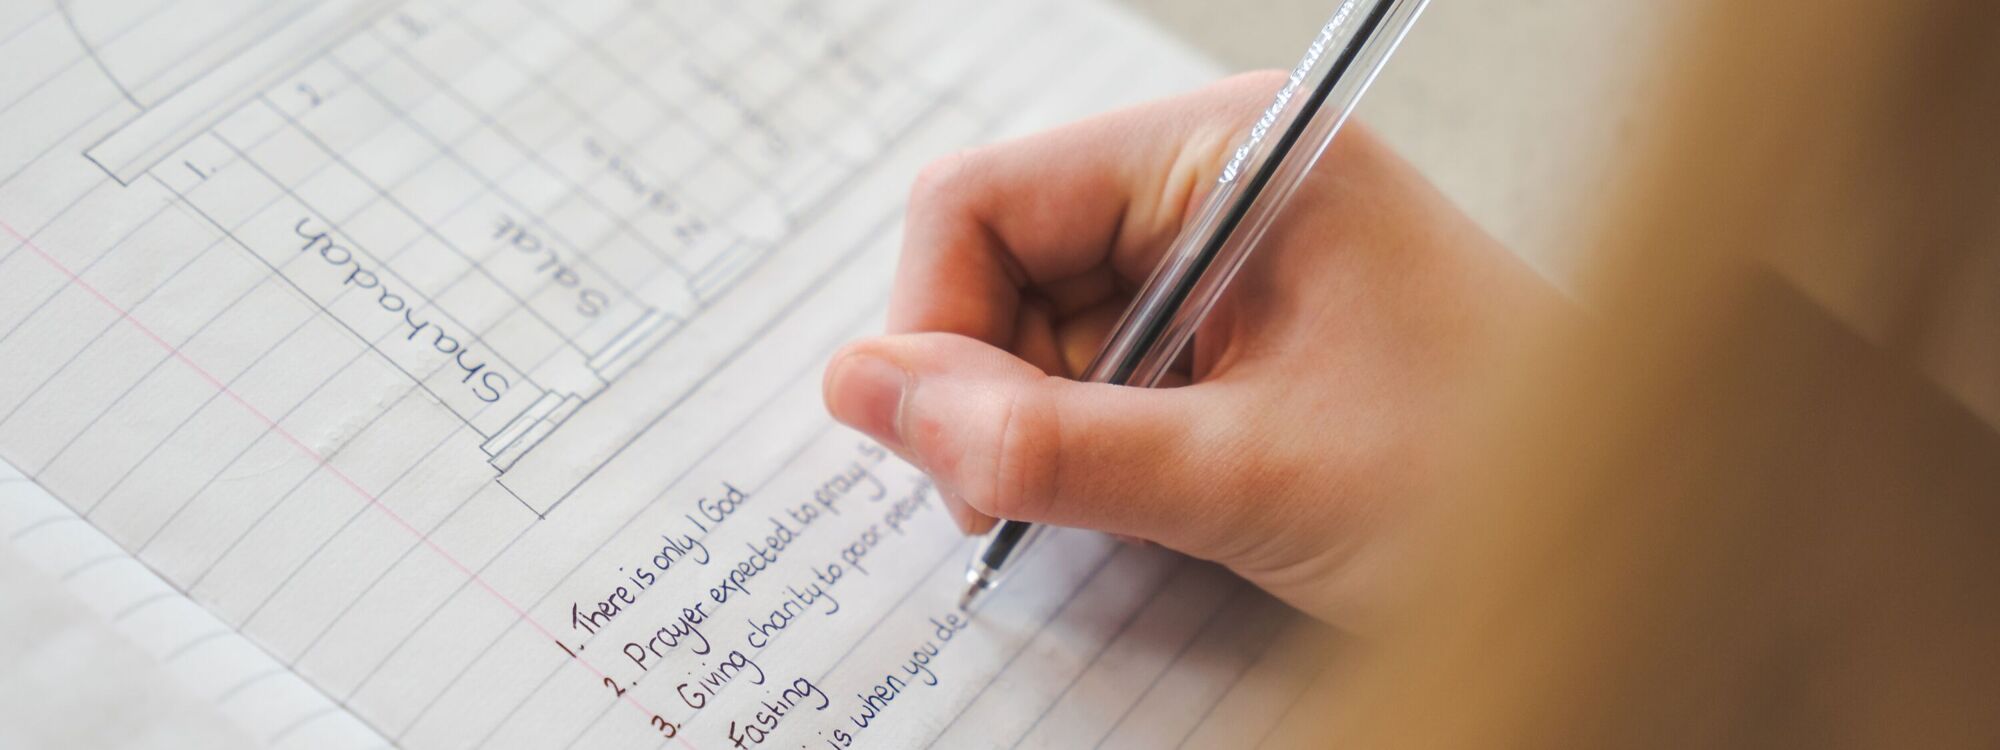 1.
Shahadah
2.
Salat
3.
1. There is only 1 God
2. Prayer expected to pray 5
3. Giving charity to poor
Fasting
is when you de